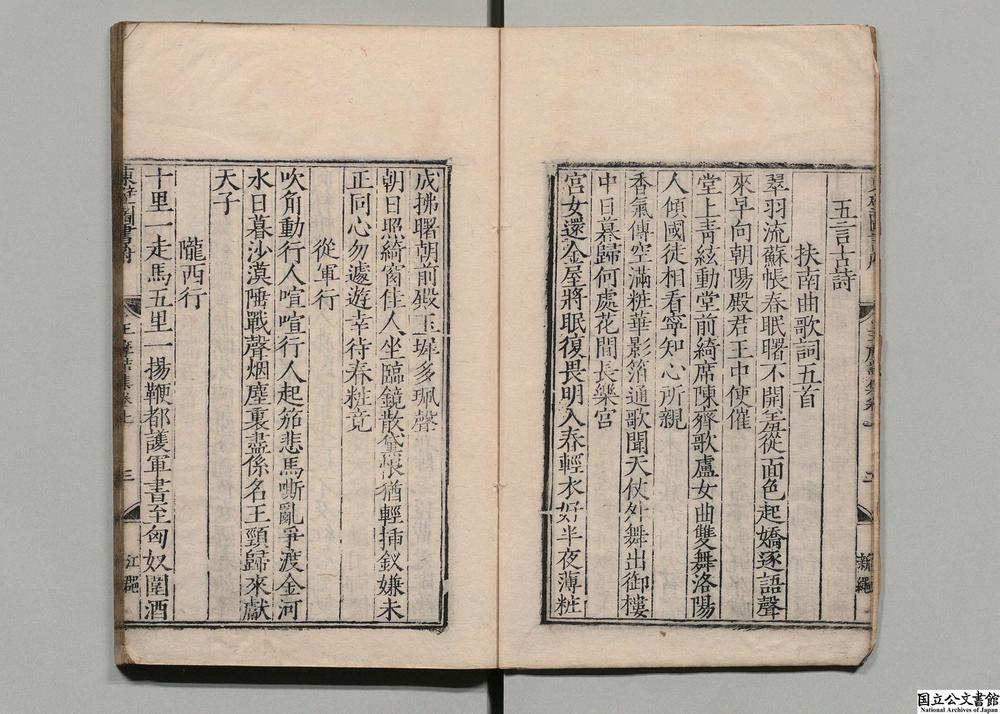 五言古詩
扶南曲歌詞五首
翠羽流蘇帳春眠曙不開羞從面色起嬌逐語聲
來早向朝陽殿君王中使催
堂上青絃動堂前綺席陳齊歌盧女曲雙舞洛陽
人傾國徒相看寧知心所親
香氣傳空滿粧華影箔通歌聞天仗外舞出御樓
中日暮歸何處花間長樂宮
宮女還金屋將眠復畏明入春輕衣好半夜薄粧
成拂曙朝前殿玉墀多珮聲
朝日照綺窗佳人坐臨鏡散黛恨猶輕插釵嫌未
正同心勿遽遊幸待春粧竟
從軍行
吹角動行人喧喧行人起笳悲馬嘶亂爭渡金河
水日暮沙漠陲戰聲烟塵裏盡係名王頸歸來獻
天子
隴西行
十里一走馬五里一揚鞭都護軍書至匈奴圍酒
東壁圖書府
王摩詰集卷上
三
江
国立公文書館
National Archives of Japan